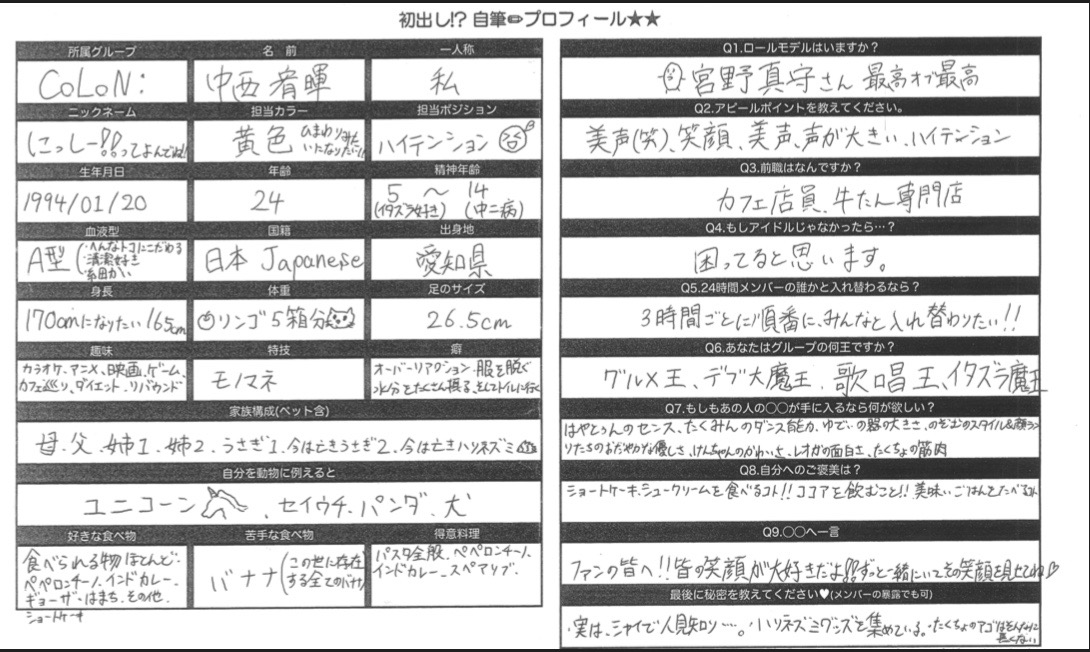 初出し!? 自筆✏プロフィール★★
所属グループ
名 前
一人称
CoLoN:
中西 脩暉
私
ニックネーム
担当カラー
担当ポジション
にっしー!!ってよんでね!!
黄色 ひまわりみた
いになりたい!!
ハイテンション
生年月日
年齢
精神年齢
1994/01/20
24
5 〜 14
(イタズラ好き) (中二病)
血液型
国籍
出身地
A型
・へんなトコにこだわる
・清潔好き
・細かい
日本 Japanese
愛知県
身長
体重
足のサイズ
170cmになりたい165cm
リンゴ5箱分
26.5cm
趣味
特技
癖
カラオケ、アニメ、映画、ゲーム、
カフェ巡り、ダイエット、リバウンド
モノマネ
オーバーリアクション・服を脱ぐ
水分をたくさん摂る、そしてトイレに行く
家族構成(ペット含)
母、父、姉1、姉2、うさぎ1、今は亡きうさぎ2、今は亡きハリネズミ
自分を動物に例えると
ユニコーン、セイウチ、パンダ、犬
好きな食べ物
苦手な食べ物
得意料理
食べられる物ほとんど・
ペペロンチーノ、インドカレー、
ギョーザ・はまち、その他、
ショートケーキ
バナナ
(この世に存在
する全てのバナナ)
パスタ全般、ペペロンチーノ、
インドカレー、スペアリブ、
Q1.ロールモデルはいますか？
宮野真守さん 最高オブ最高
Q2.アピールポイントを教えてください。
美声(笑)、笑顔、美声、声が大きい、ハイテンション
Q3.前職はなんですか？
カフェ店員、牛たん専門店
Q4.もしアイドルじゃなかったら…？
困ってると思います。
Q5.24時間メンバーの誰かと入れ替わるなら？
3時間ごとに順番に、みんなと入れ替わりたい!!
Q6.あなたはグループの何王ですか？
グルメ王、デブ大魔王、歌唱王、イタズラ魔王
Q7.もしもあの人の〇〇が手に入るなら何が欲しい？
はやとぅんのセンス、たくみんのダンス能力、ゆでぃの器の大きさ、のぞむのスタイル&顔
りたちのおだやかな優しさ、けんちゃんのかわいさ、レオガの面白さ、たくちょの筋肉
Q8.自分へのご褒美は？
ショートケーキ、シュークリームを食べるコト!!ココアを飲むこと!!美味いごはんをたべるコト
Q9.〇〇へ一言
ファンの皆へ!!皆の笑顔が大好きだよ!!ずっと一緒にいてその笑顔を見せてね♡
最後に秘密を教えてください♥(メンバーの暴露でも可)
・実は、シャイで人見知り…。・ハリネズミグッズを集めている。・たくちょのアゴはそんなに
長くない